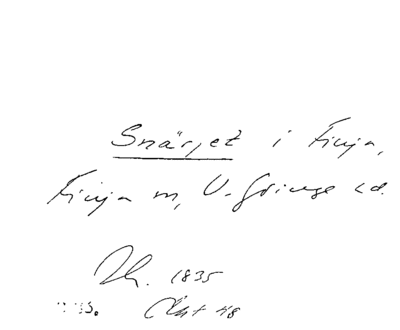 Snärjet i Finja,
Finja m, V. Göinge hd.
1835
Akt 48